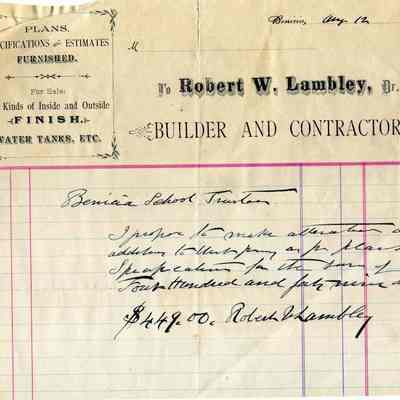 PLANS,
CIFICATIONS and ESTIMATES
FURNISHED.
For Sale:
Kinds of Inside and Outside
FINISH,
WATER TANKS, ETC.
Benicia, Aug 12
M
To Robert W. Lambley, Dr.
BUILDER AND CONTRACTOR
Benicia School Trustees
I propose to make alteration
addition to as per plans
Specifications for the sum of
Four Hundred and forty nine
$449.00. Robert W Lambley